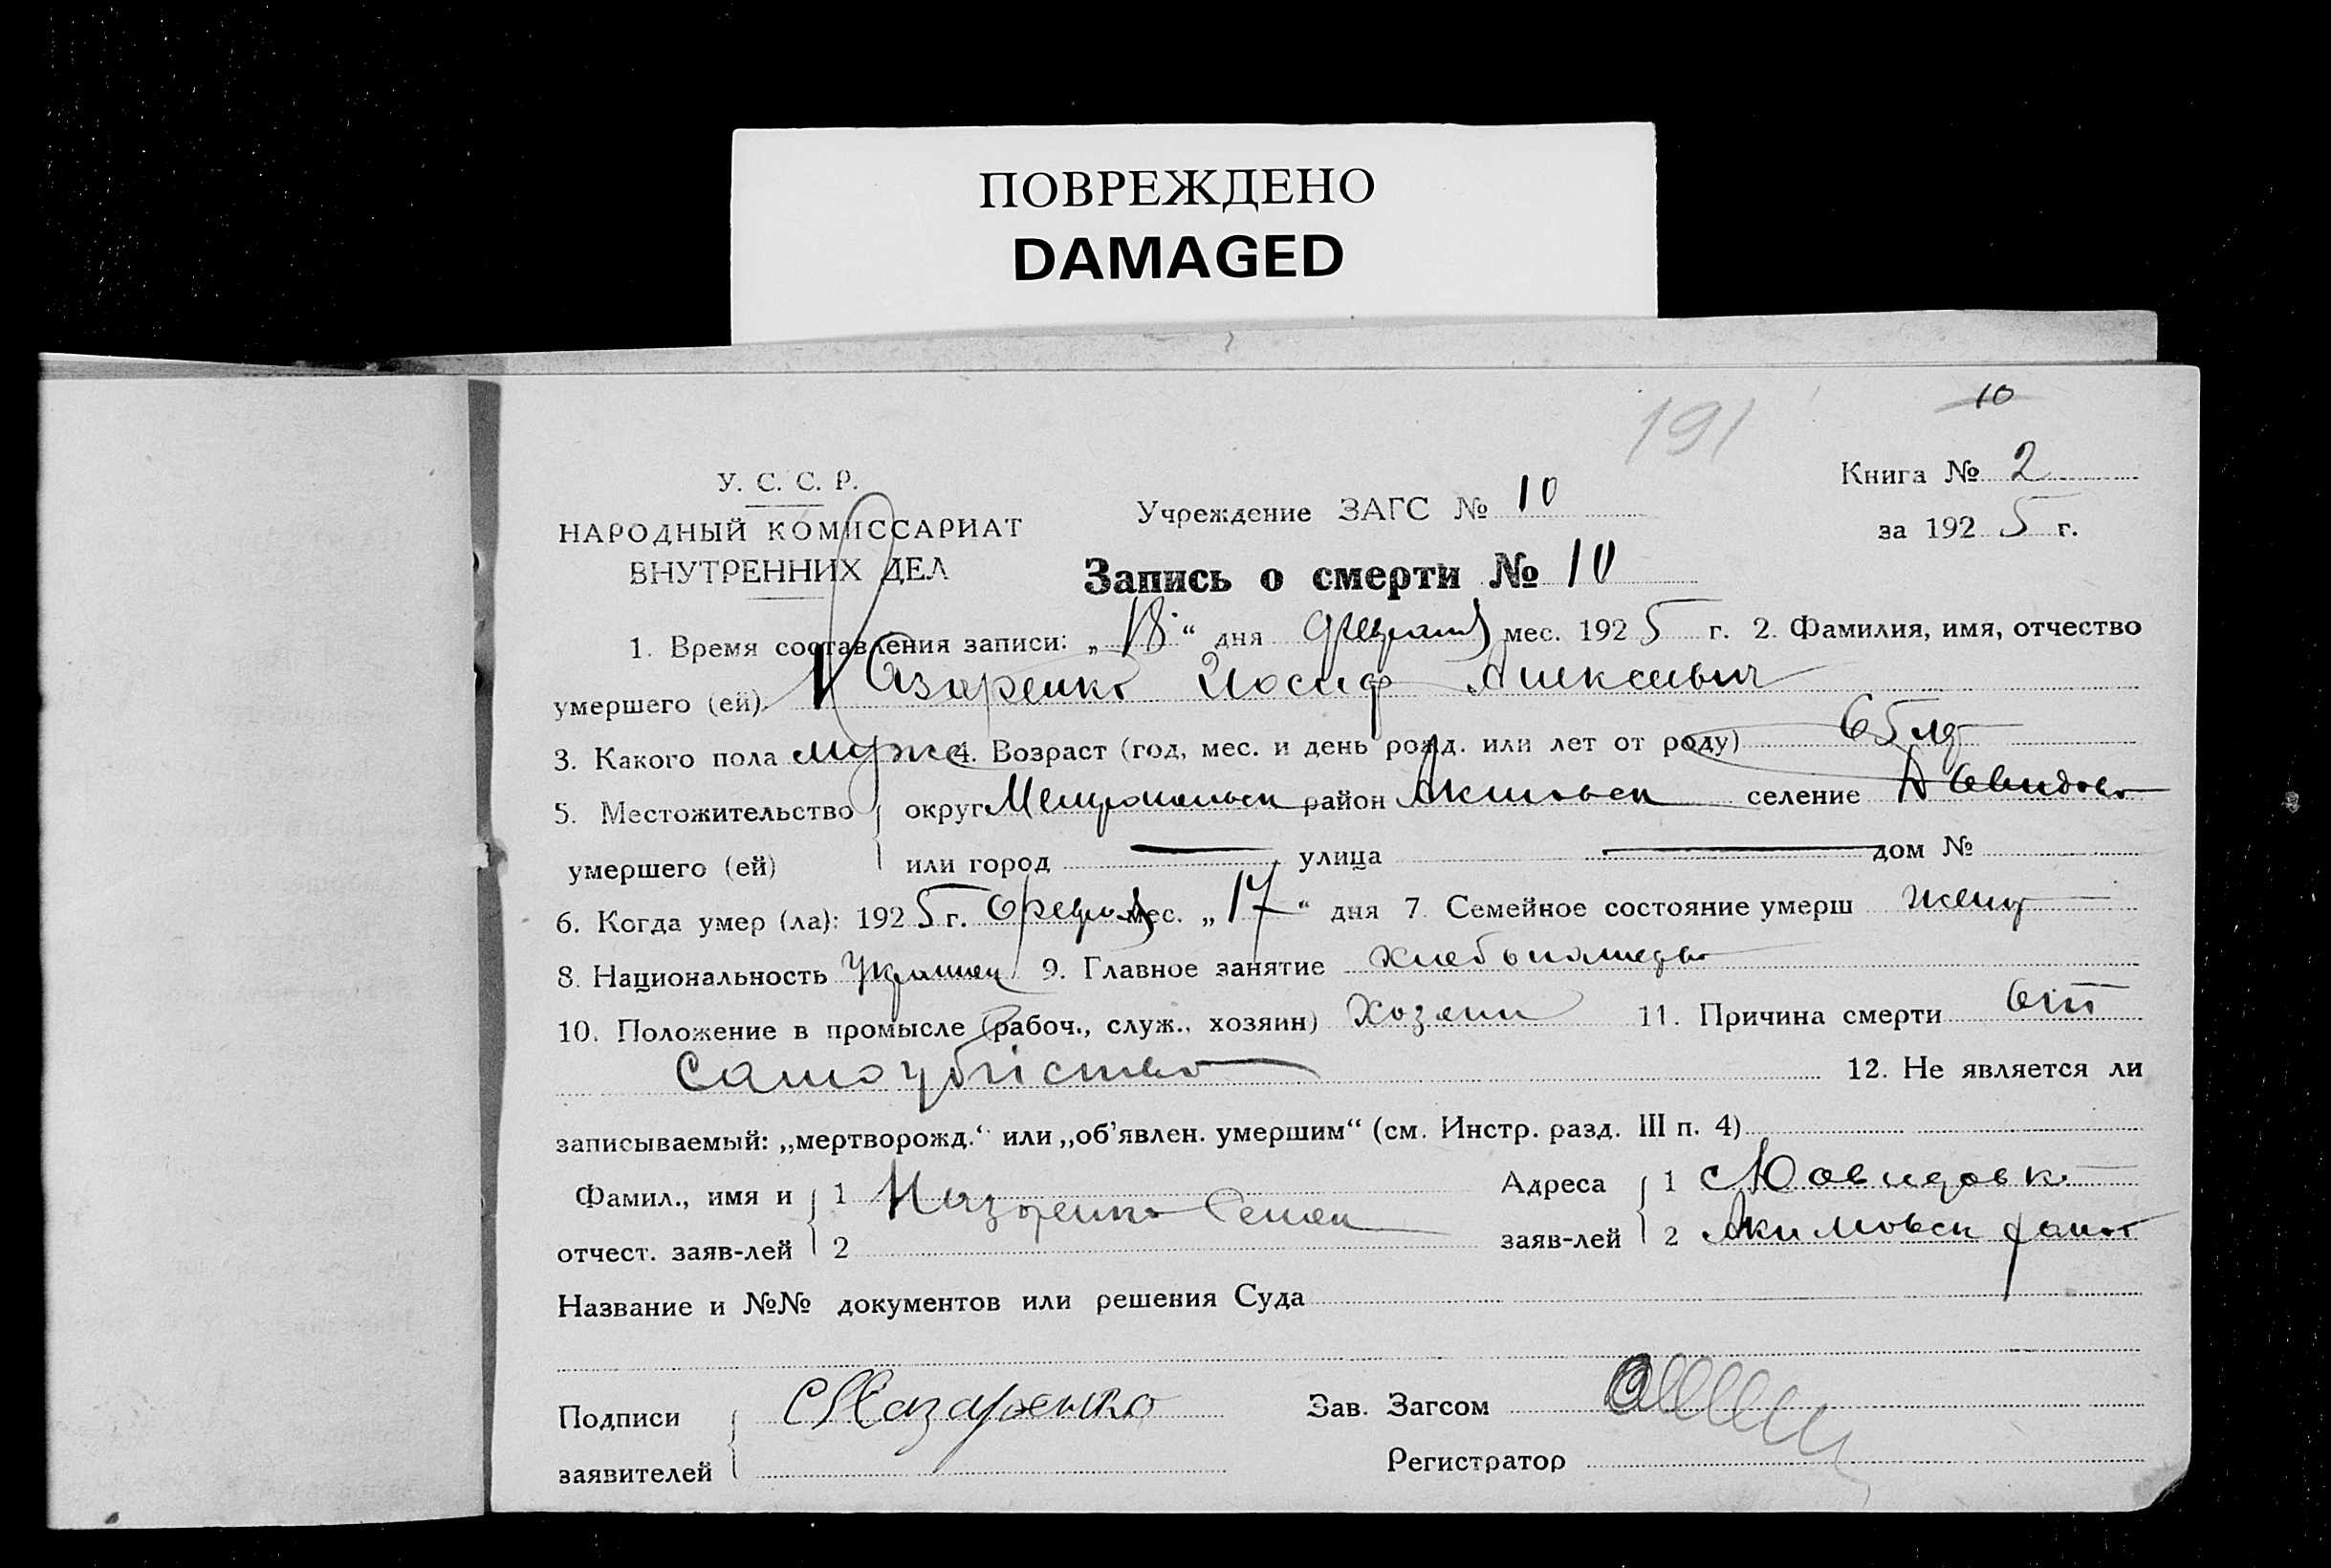 ПОВРЕЖДЕНО
DAMAGED
10
191
У. С. С. Р.
НАРОДНЫЙ КОМИССАРИАТ
ВНУТРЕННИХ ДЕЛ
Учреждение ЗАГС № 10
Книга № 2
за 1925 г.
Запись о смерти № 10
1. Время составления записи: „18“ дня мес. 1925 г. 2. Фамилия, имя, отчество
умершего (ей) Назаренко Иосиф Алексеевич
3. Какого пола муж 4. Возраст (год, мес. и день рожд. или лет от роду) 65 л
5. Местожительство округ район селение
умершего (ей) или город улица дом №
6. Когда умер (ла): 1925 г. мес. „17“ дня 7. Семейное состояние умерш
8. Национальность 9. Главное занятие
10. Положение в промысле (рабоч., служ., хозяин) 11. Причина смерти от
12. Не является ли
записываемый: „мертворожд.“ или „об’явлен. умершим“ (см. Инстр. разд. III п. 4)
Фамил., имя и 1 Назаренко Семен Адреса 1
отчест. заяв-лей 2 заяв-лей 2 Акимовск
Название и №№ документов или решения Суда
Подписи С Назаренко Зав. Загсом
заявителей Регистратор